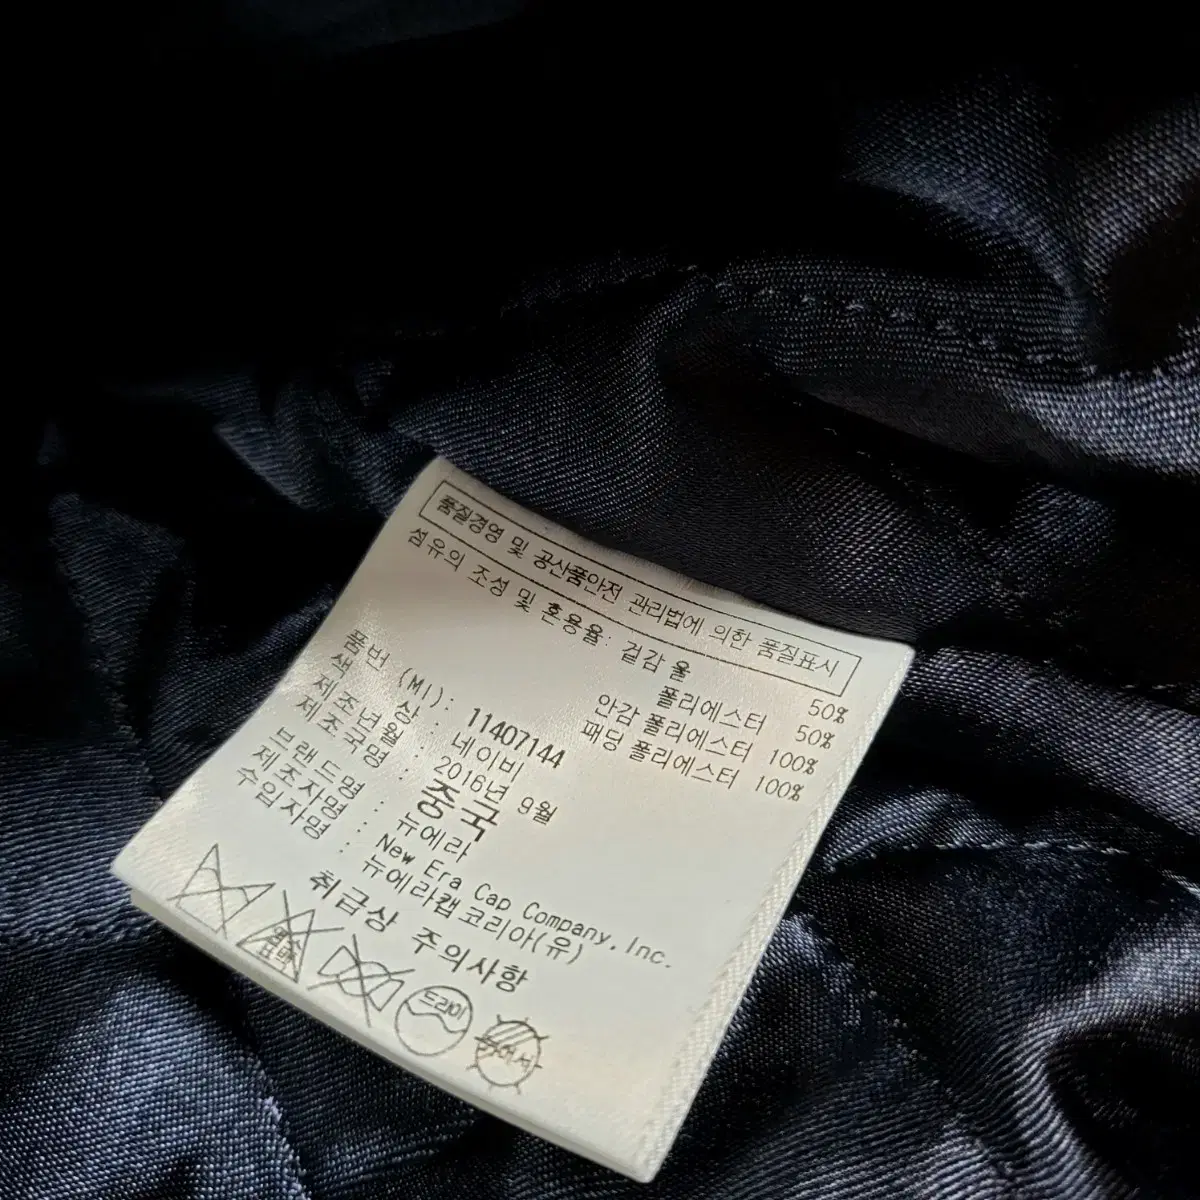 품질경영 및 공산품안전 관리법에 의한 품질표시
섬유의 조성 및 혼용율: 겉감 울 50%
폴리에스터 50%
안감 폴리에스터 100%
패딩 폴리에스터 100%
품번 (MI): 11407144
색 상 : 네이비
제조년월 : 2016년 9월
제조국명 : 중국
브랜드명 : 뉴에라
제조자명 : New Era Cap Company, Inc.
수입자명 : 뉴에라캡코리아(유)
취급상 주의사항
드라이